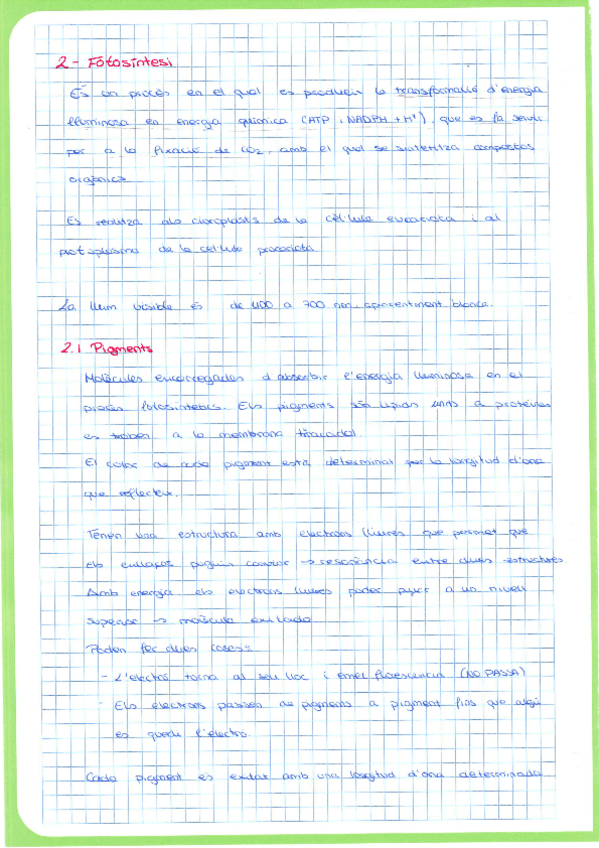 2- Fotosíntesi
És un procés en el qual es produeix la transformació d'energia
lluminosa en energia química (ATP i NADPH + H⁺), que es fa servir
per a la fixació de CO₂, amb el qual se sintetitza compostos
orgànics
Es realitza als cloroplasts de la cèl·lula eucariota i al
protoplasma de la cèl·lula procariota
La llum visible és de 400 a 700 nm, aparentment blanca.
2.1 Pigments
Molècules encarregades d'absorbir l'energia lluminosa en el
procés fotosintètic. Els pigments són lípids units a proteïnes
es troben a la membrana tilacoidal.
El color de cada pigment està determinat per la longitud d'ona
que reflecteix.
Tenen una estructura amb electrons lliures que permet que
els enllaços puguin canviar → ressonància entre dues estructures
Amb energia els electrons lliures poden pujar a un nivell
superior → molècula excitada
Poden fer dues coses:
- L'electró torna al seu lloc i emet fluorescència (NO PASSA)
- Els electrons passen de pigment a pigment fins que algú
es quedi l'electró.
Cada pigment es excitat amb una longitud d'ona determinada